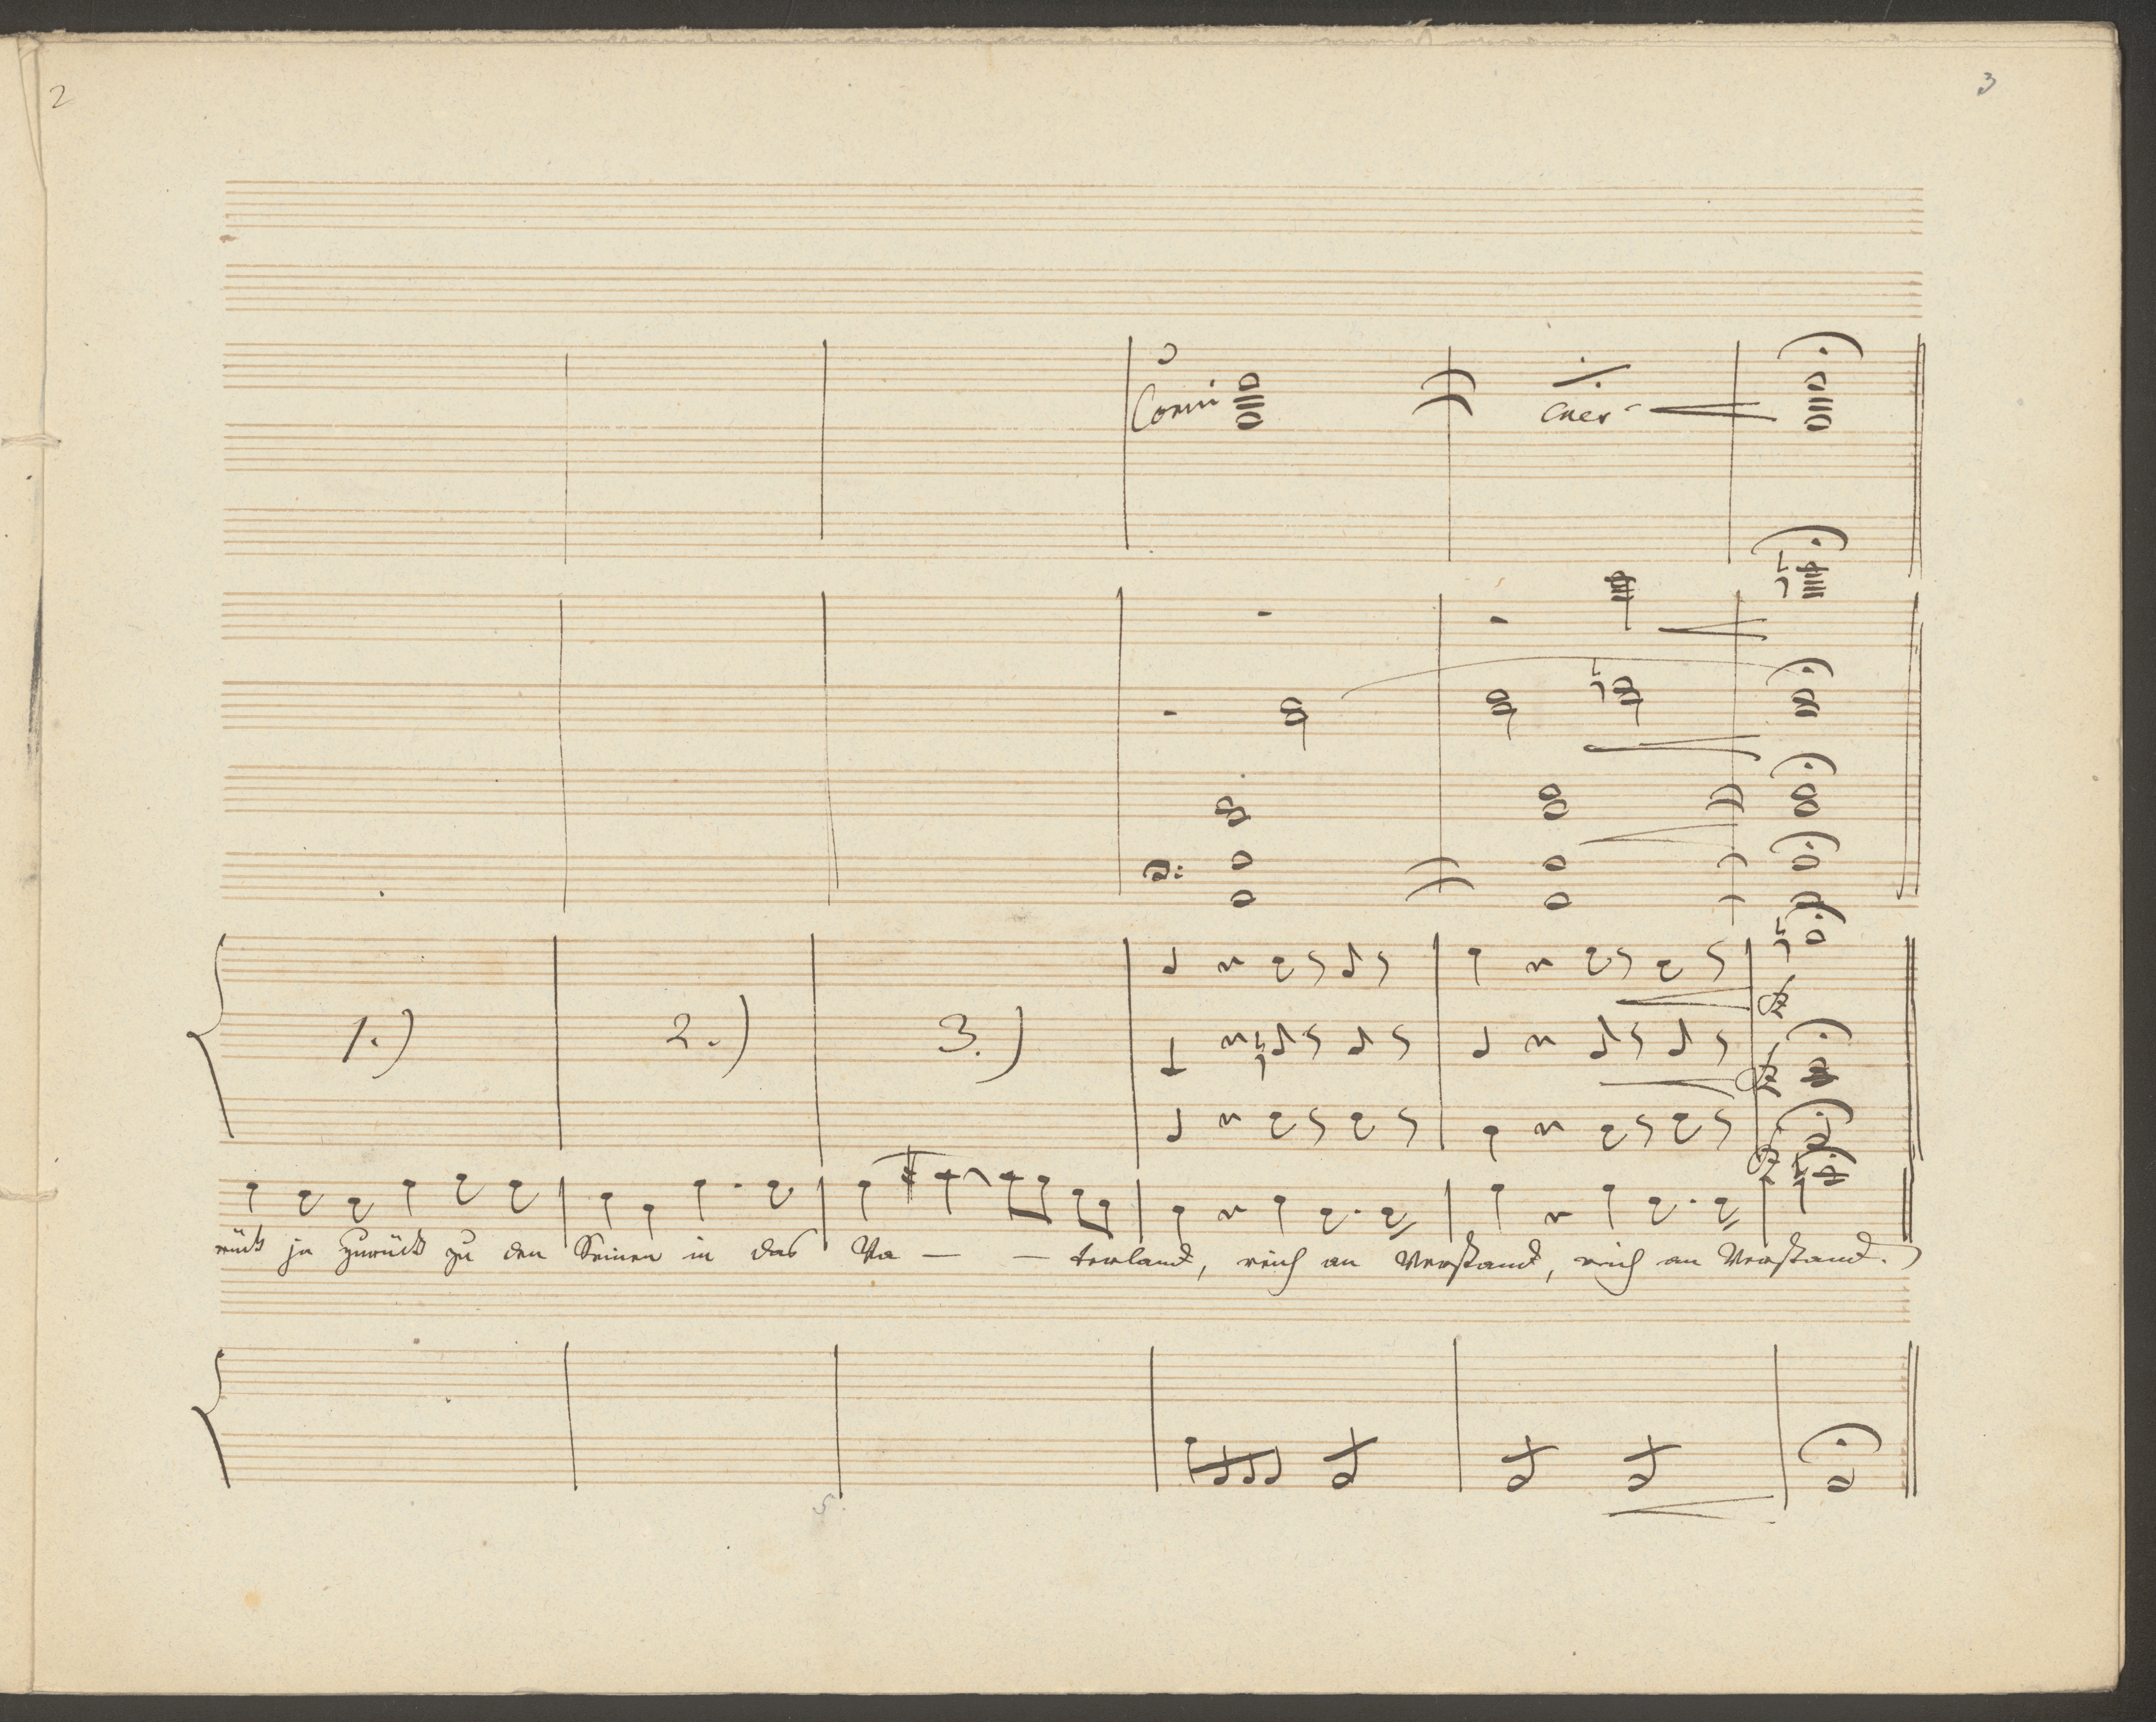 2
3
Corni
cres
1.) 2.) 3.)
rück ja zurück zu den Seinen in das Va — — terland, reich an Verstand, reich an Verstand.